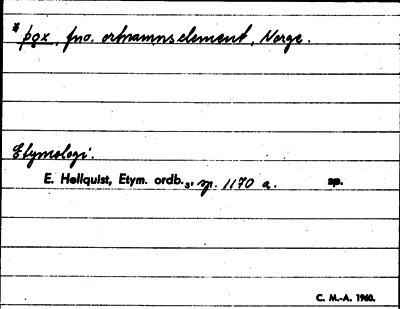 * þǫx, fno. ortnamnselement, Norge.
Etymologi.
E. Hellquist, Etym. ordb.₃, sp. 1170 a. sp.
C. M.-A. 1960.